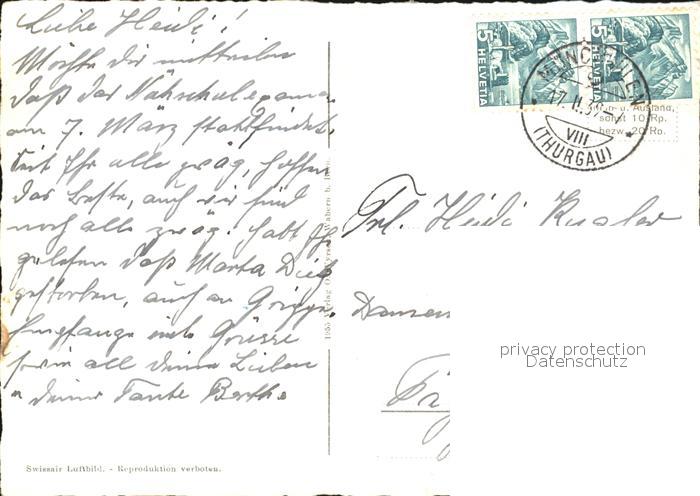 Liebe Heidi!
Möchte dir mitteilen
daß das Nähschulexamen
am 7. März stattfindet.
Seit Ihr alle zwäg, hoffen
das Beste, auch wir sind
noch alle zwäg. habt Ihr
gelesen daß Marta
gestorben, auch an Grippe.
Empfange viele Grüsse
sowie all deine Lieben
v. deiner Tante Bertha
Swissair Luftbild. - Reproduktion verboten.
5 HELVETIA
5 HELVETIA
MÜNCHWILEN
VIII
(THURGAU)
In- u. Ausland,
schst 10 Rp.
bezw. 20 Rp.
Frl. Heidi
privacy protection
Datenschutz